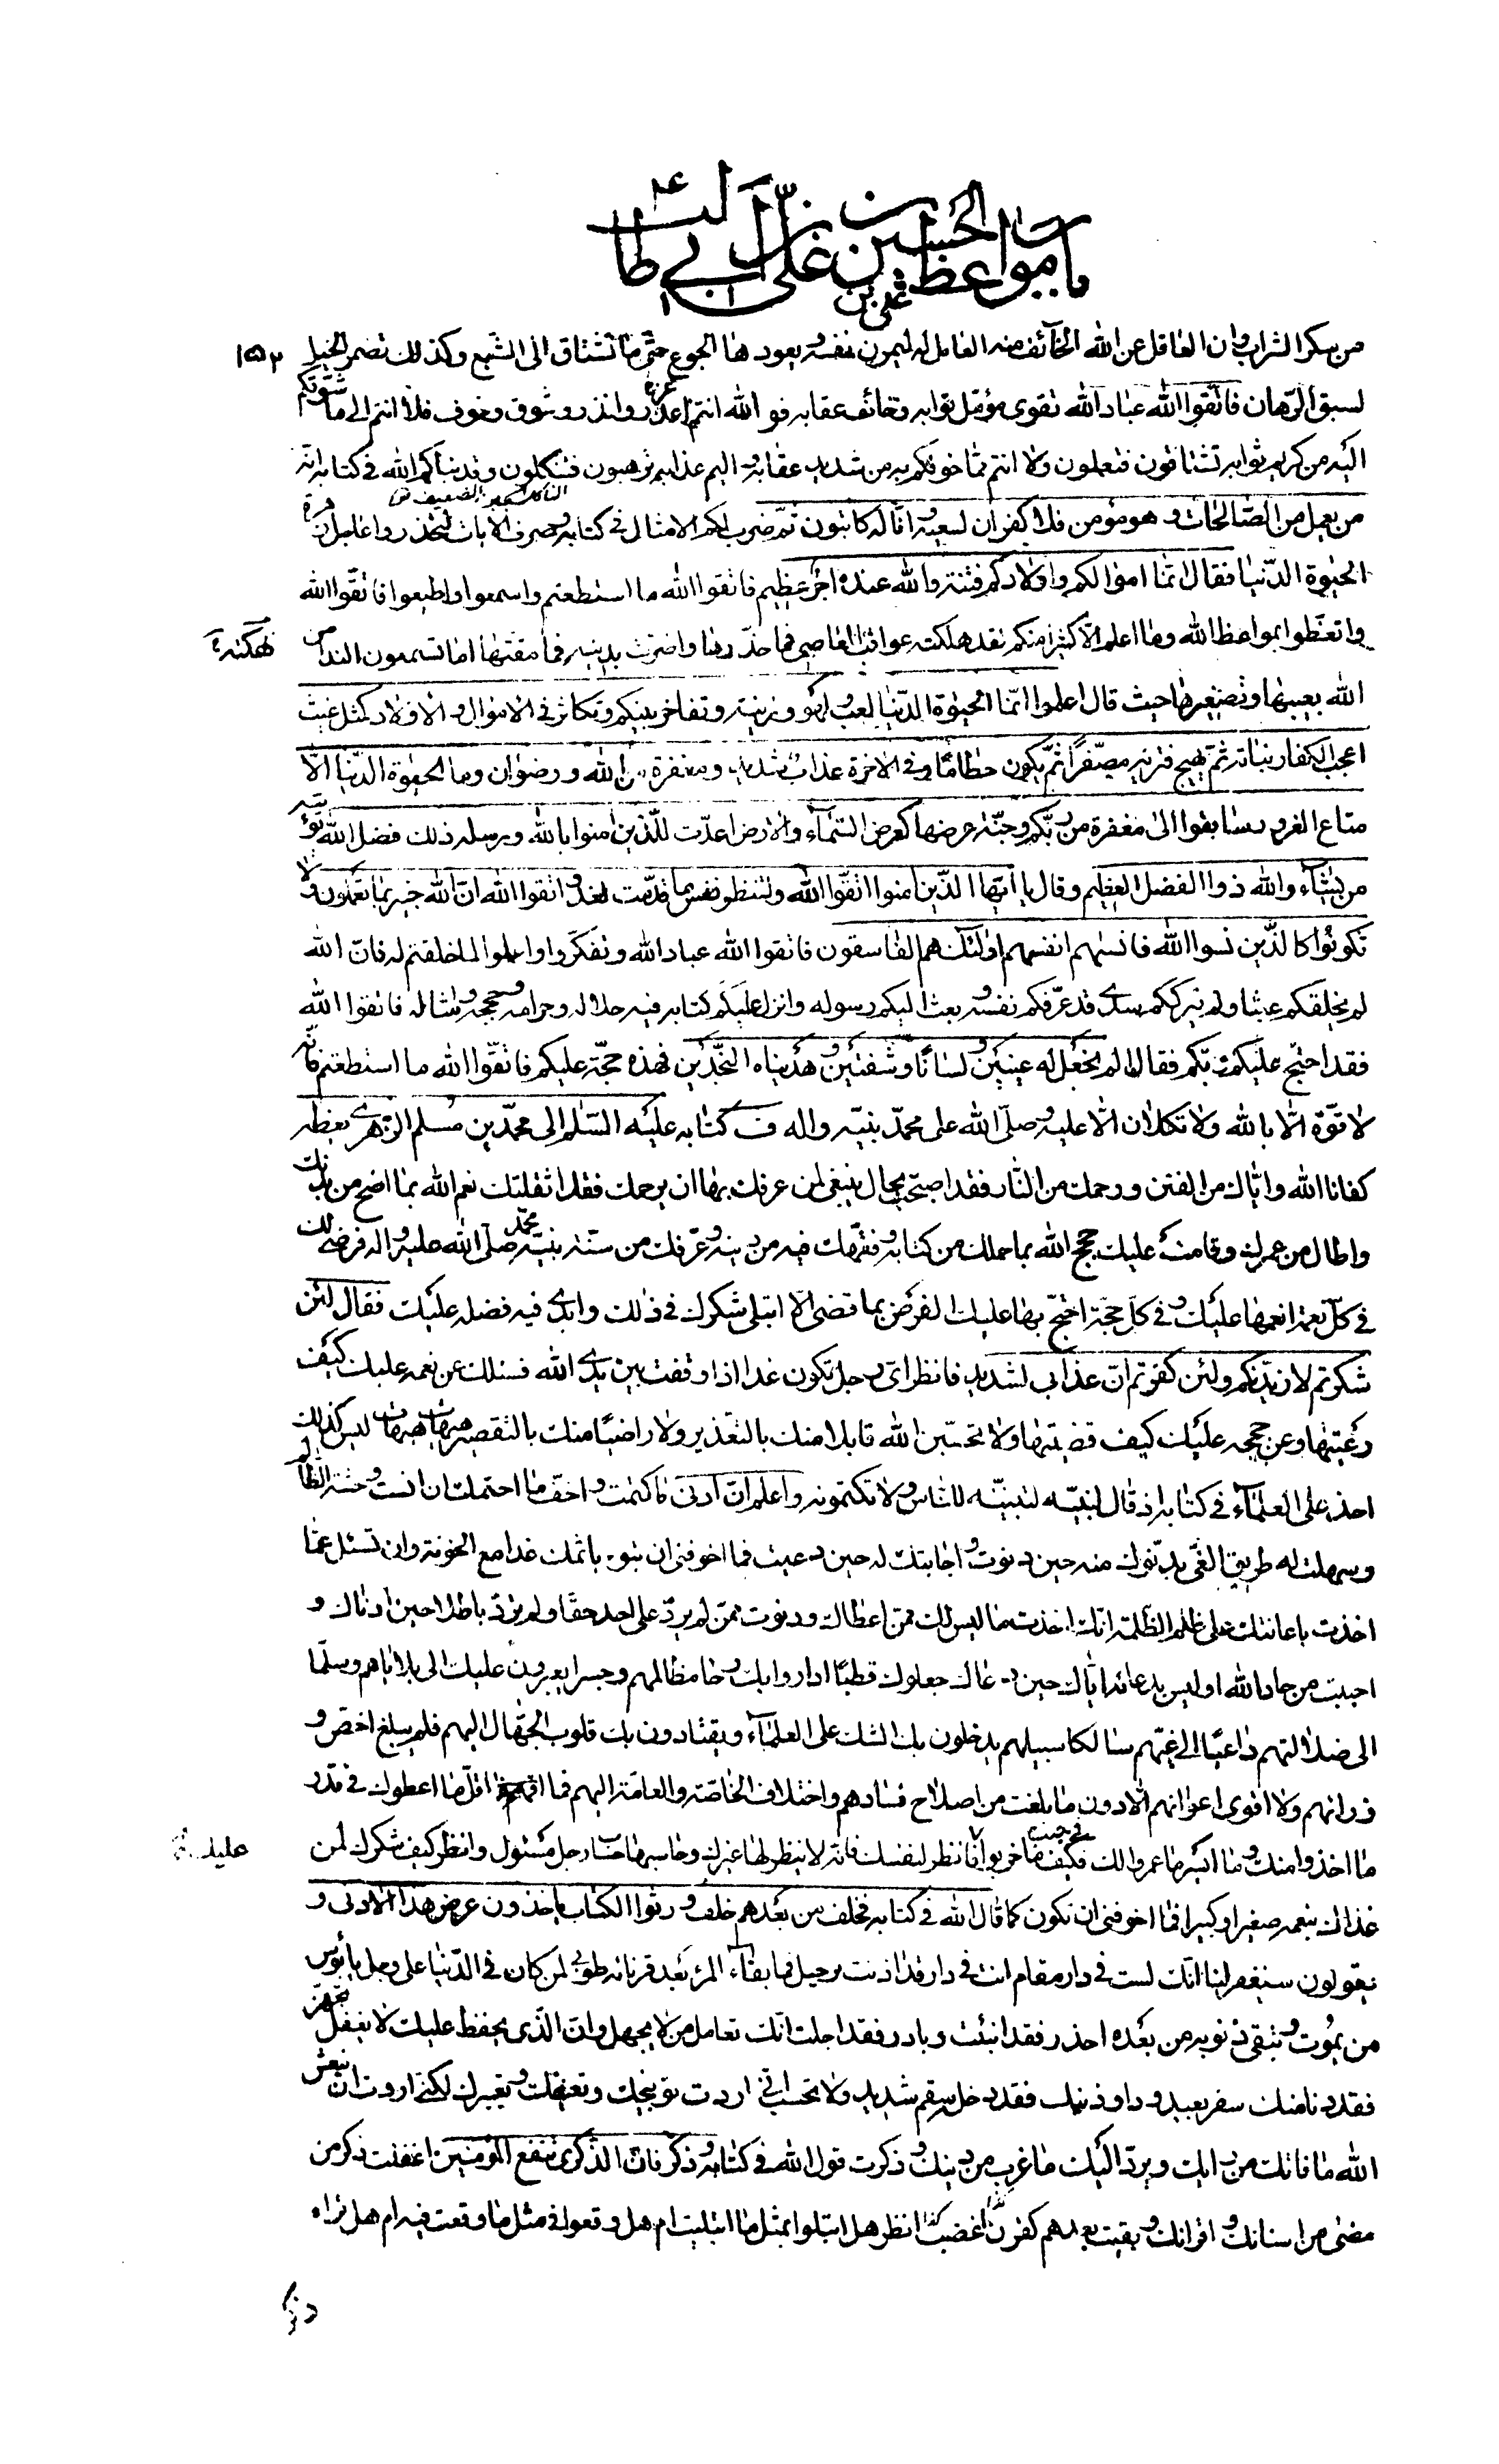 باب مواعظ علي بن الحسين بن علي بن أبي طالب ع
١٥٣
من سكر الشراب وان العاقل عن الله الخائف منه العامل له ليمرن نفسه ويعودها الجوع حتى ما تشتاق الى الشبع وكذلك تضمر الخيل
لسبق الرهان فاتقوا الله عباد الله تقوى مؤمل ثوابه وخائف عقابه فو الله انتم اعذر وانذر وشوق وخوف فلا انتم الى ما شوقكم
اليه من كريم ثوابه تشتاقون فتعملون ولا انتم مما خوفكم به من شديد عقابه واليم عذابه ترهبون فتنكلون وقد نبأكم الله في كتابه انه
الناكل الضعيف
من يعمل من الصالحات وهو مؤمن فلا كفران لسعيه وانا له كاتبون ثم ضرب لكم الامثال في كتابه وصرف الايات لتحذروا عاجل زهرة
الحيوة الدنيا فقال انما اموالكم واولادكم فتنة والله عنده اجر عظيم فاتقوا الله ما استطعتم واسمعوا واطيعوا فاتقوا الله
واتعظوا بمواعظ الله وما اعلم الا كثيرا منكم لقد هلكته عواقب المعاصي فما حذرها واضرت بدينه فما مقتها اما تسمعون النداء من
نهكته
الله بعيبها وتصغيرها حيث قال اعلموا انما الحيوة الدنيا لعب ولهو وزينة وتفاخر بينكم وتكاثر في الاموال والاولاد كمثل غيث
اعجب الكفار نباته ثم يهيج فتريه مصفرا ثم يكون حطاما وفي الاخرة عذاب شديد ومغفرة من الله ورضوان وما الحيوة الدنيا الا
متاع الغرور سابقوا الى مغفرة من ربكم وجنة عرضها كعرض السماء والارض اعدت للذين امنوا بالله ورسله ذلك فضل الله يؤتيه
من يشاء والله ذوا الفضل العظيم وقال يا ايها الذين امنوا اتقوا الله ولتنظر نفس ما قدمت لغد واتقوا الله ان الله خبير بما تعملون ولا
تكونوا كالذين نسوا الله فانسيهم انفسهم اولئك هم الفاسقون فاتقوا الله عباد الله وتفكروا واعملوا لما خلقتم له فان الله
لم يخلقكم عبثا ولم يترككم سدى قد عرفكم نفسه وبعث اليكم رسوله وانزل عليكم كتابه فيه حلاله وحرامه وحججه وامثاله فاتقوا الله
فقد احتج عليكم ربكم فقال الم نجعل له عينين ولسانا وشفتين وهديناه النجدين فهذه حجة عليكم فاتقوا الله ما استطعتم فانه
لا قوة الا بالله ولا تكلان الا عليه وصلى الله على محمد نبيه واله ف كتابه عليه السلم الى محمد بن مسلم الزهري يعظه
كفانا الله واياك من الفتن ورحمك من النار فقد اصبحت بحال ينبغي لمن عرفك بها ان يرحمك فقد اثقلتك نعم الله بما اصح من بدنك
واطال من عمرك وقامت عليك حجج الله بما حملك من كتابه وفقهك فيه من دينه وعرفك من سنة نبيه محمد صلى الله عليه واله فرضى لك
في كل نعمة انعمها عليك وفي كل حجة احتج بها عليك الفرض بما قضى الا ابتلى شكرك في ذلك وابدى فيه فضله عليك فقال لئن
شكرتم لازيدنكم ولئن كفرتم ان عذابي لشديد فانظر اي رجل تكون غدا اذا وقفت بين يدي الله فسئلك عن نعمه عليك كيف
رعيتها وعن حججه عليك كيف قضيتها ولا تحسبن الله قابلا منك بالتعذير ولا راضيا منك بالتقصير هيهات هيهات ليس كذلك
اخذ على العلماء في كتابه اذ قال لتبيننه للناس ولا تكتمونه واعلم ان ادنى ما كتمت واخف ما احتملت ان انست وحشة الظالم
وسهلت له طريق الغي بدنوك منه حين دنوت واجابتك له حين دعيت فما اخوفني ان تبوء باثمك غدا مع الخونة وان تسئل عما
اخذت باعانتك على ظلم الظلمة انك اخذت ما ليس لك ممن اعطاك ودنوت ممن لم يرد على احد حقا ولم ترد باطلا حين ادناك و
احببت من حاد الله اوليس بدعائه اياك حين دعاك جعلوك قطبا اداروا بك رحا مظالمهم وجسرا يعبرون عليك الى بلاياهم وسلما
الى ضلالتهم داعيا الى غيهم سالكا سبيلهم يدخلون بك الشك على العلماء ويقتادون بك قلوب الجهال اليهم فلم يبلغ اخص و
زرائهم ولا اقوى اعوانهم الا دون ما بلغت من اصلاح فسادهم واختلاف الخاصة والعامة اليهم فما اقل ما اعطوك في قدر
ما اخذوا منك وما ايسر ما عمروا لك فكيف ما خربوا فانظر لنفسك فانه لا ينظر لها غيرك وحاسبها حساب رجل مسئول وانظر كيف شكرك لمن
في جنب
عليك
غذاك بنعمه صغيرا وكبيرا فما اخوفني ان تكون كما قال الله في كتابه فخلف من بعدهم خلف ورثوا الكتاب ياخذون عرض هذا الادنى و
يقولون سيغفر لنا انك لست في دار مقام انت في دار قد اذنت برحيل فما بقاء المرء بعد قرنائه طوبى لمن كان في الدنيا على وجل يا بؤس
من يموت وتبقى ذنوبه من بعده احذر فقد انبئت وبادر فقد اجلت انك تعامل من لا يجهل وان الذي يحفظ عليك لا يغفل تجهز
فقد دنا منك سفر بعيد وداو ذنبك فقد دخله سقم شديد ولا تحسب اني اردت توبيخك وتعنيفك وتعييرك لكني اردت ان ينعش
الله ما فاتك من رايك ويرد اليك ما عزب من دينك وذكرت قول الله في كتابه وذكر فان الذكرى تنفع المؤمنين اغفلت ذكر من
مضى من اسنانك واقرانك وبقيت بعدهم كقرن اعضب انظر هل ابتلوا بمثل ما ابتليت ام هل وقعوا في مثل ما وقعت فيه ام هل تراه